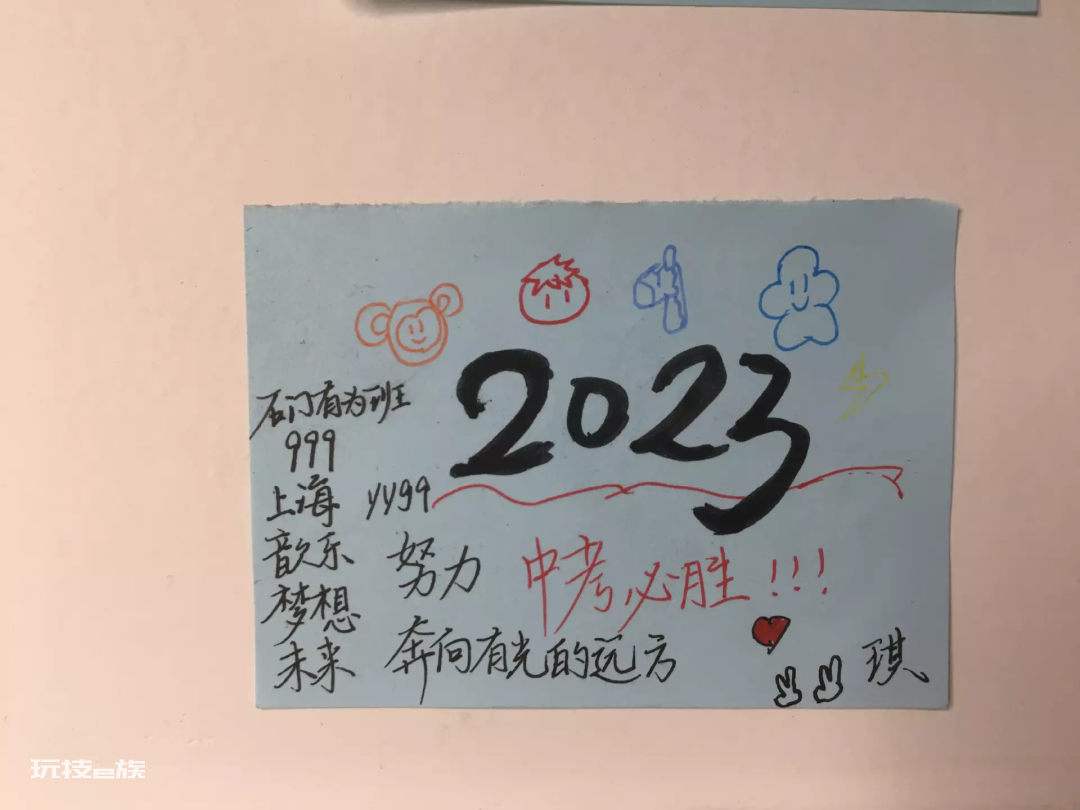 2023
石门有为班
999
上海 yy99
音乐 努力 中考必胜!!!
梦想
未来 奔向有光的远方
琪
玩技e族